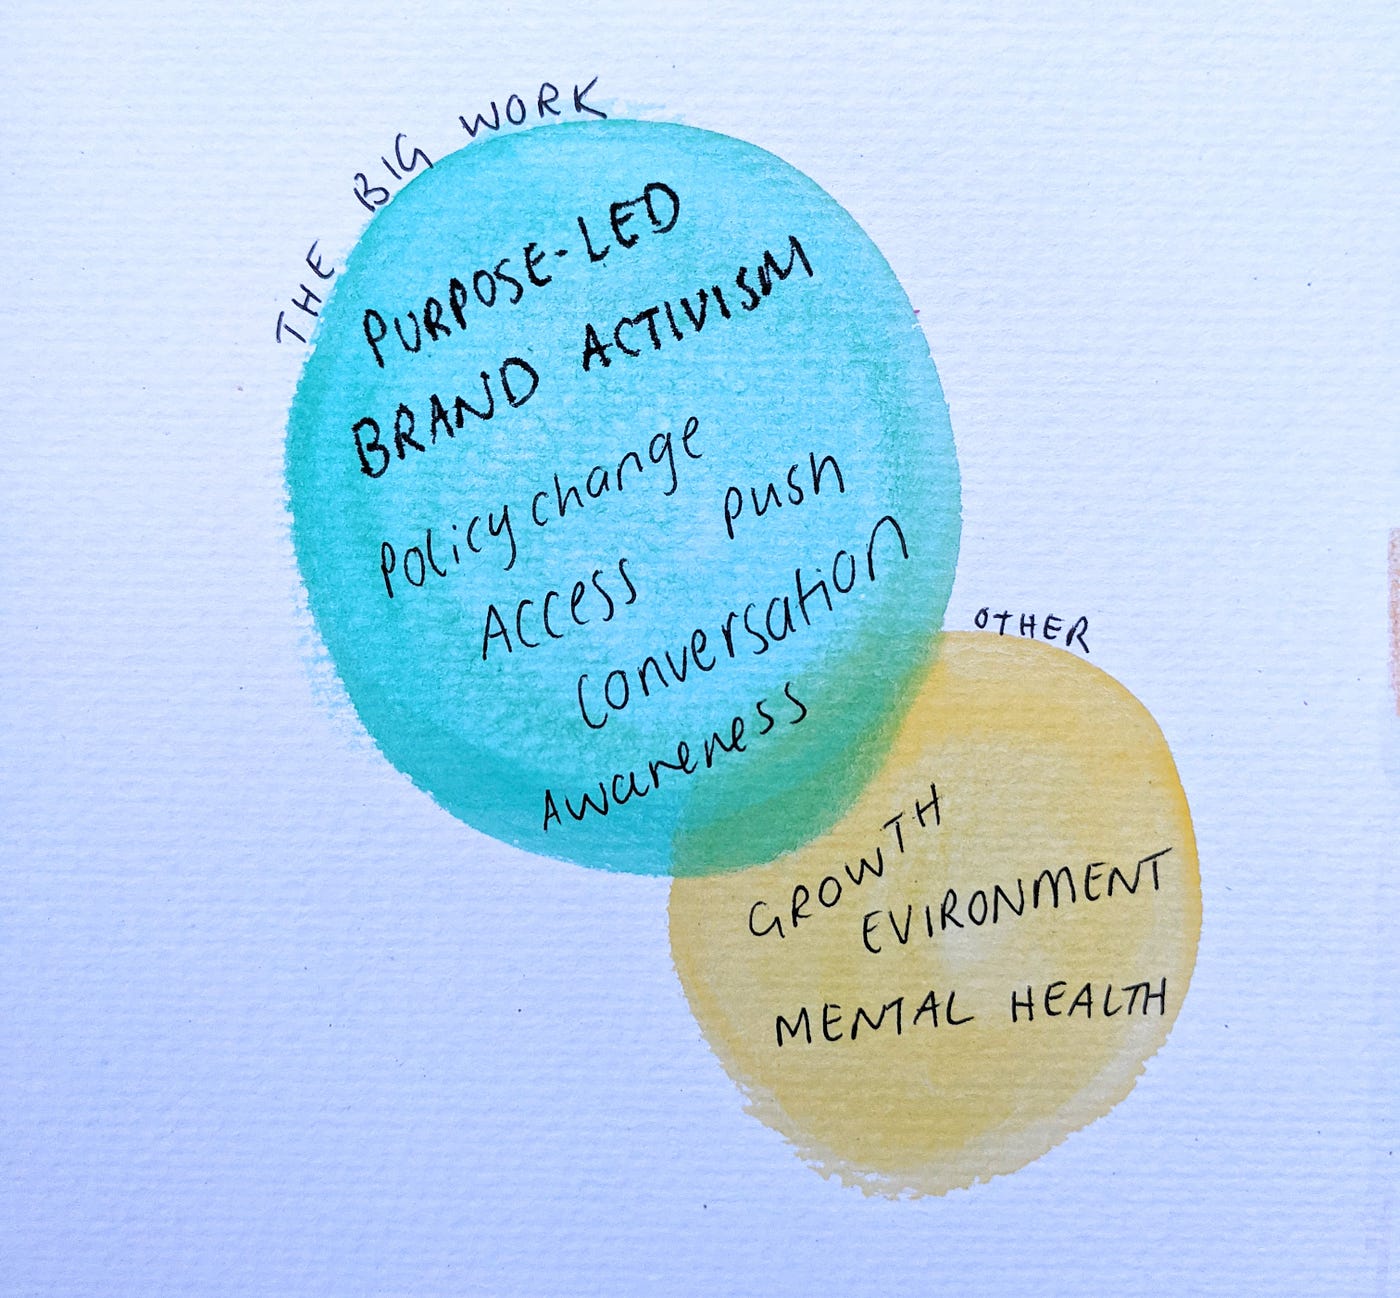 THE BIG WORK
PURPOSE-LED
BRAND ACTIVISM
Policy change
Access push
Conversation
Awareness
OTHER
GROWTH
EVIRONMENT
MENTAL HEALTH